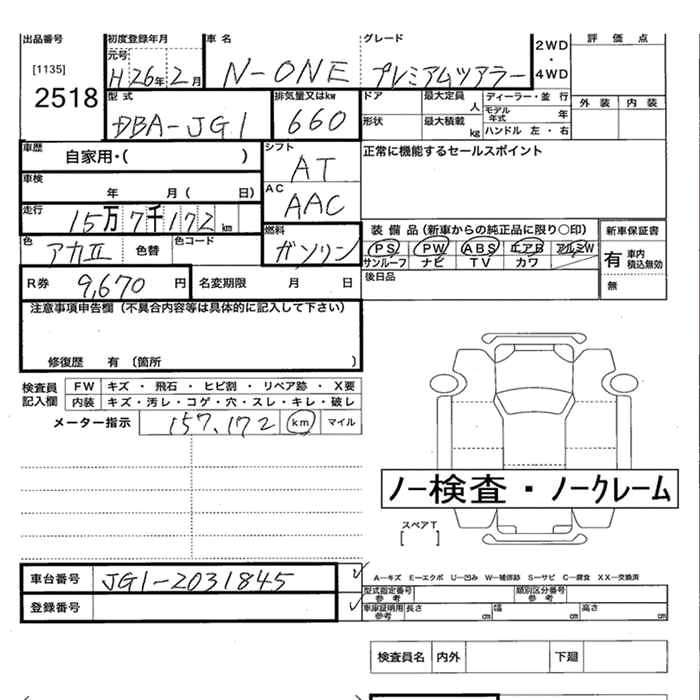 出品番号 初度登録年月 車名 グレード 2WD・4WD 評価点
[1135] 元号 H 26年 2月 N-ONE プレミアムツアラー
2518 型式 DBA-JG1 排気量又はkw 660 ドア 最大定員 人 ディーラー・並行 外装 内装
形状 最大積載 kg モデル年式 年 ハンドル 左・右
車歴 自家用・( ) シフト AT 正常に機能するセールスポイント
車検 年 月( 日) AC AAC
走行 15万7千172km 燃料 ガソリン 装備品(新車からの純正品に限り○印) 新車保証書
色 アカII 色替 色コード PS PW ABS エアB アルミW 有 車内積込無効
サンルーフ ナビ TV カワ 無
R券 9,670円 名変期限 月 日 後日品
注意事項申告欄(不具合内容等は具体的に記入して下さい)
修復歴 有 (箇所 )
検査員記入欄 FW キズ・飛石・ヒビ割・リペア跡・X要
内装 キズ・汚レ・コゲ・穴・スレ・キレ・破レ
メーター指示 157,172 km マイル
ノー検査・ノークレーム
スペアT
[ ]
車台番号 JG1-2031845 ✓ A—キズ E—エクボ U—凹み W—補修跡 S—サビ C—腐食 XX—交換済
型式指定番号 参考 類別区分番号 参考
登録番号 ✓ 車庫証明用 参考 長さ cm 幅 cm 高さ cm
検査員名 内外 下廻